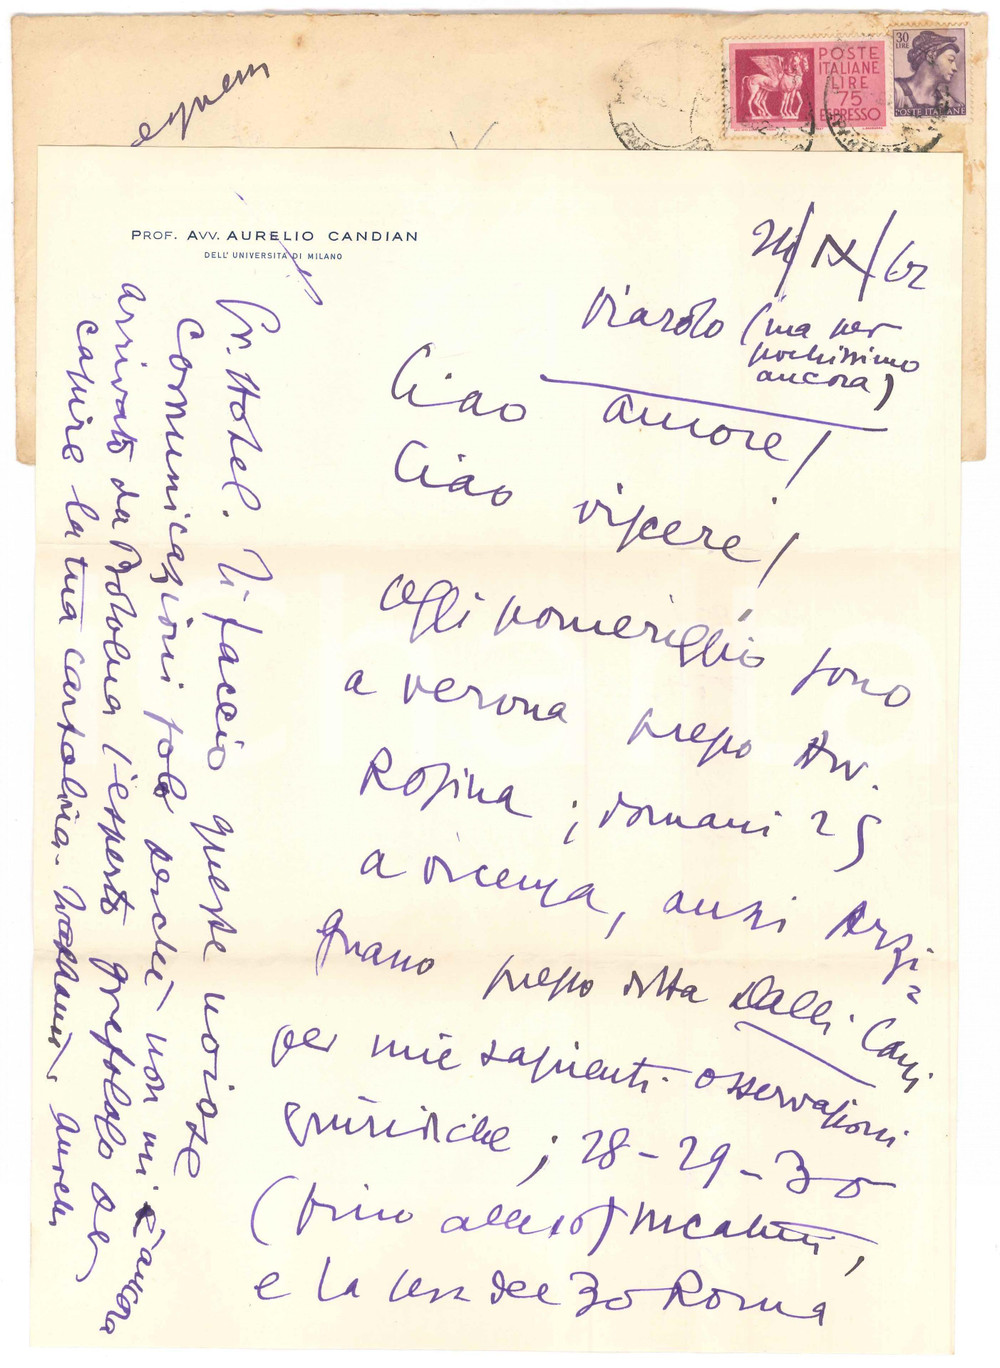 POSTE
ITALIANE
LIRE
75
ESPRESSO
30
LIRE
POSTE ITALIANE
PROF. AVV. AURELIO CANDIAN
DELL' UNIVERSITÀ DI MILANO
24/IX/62
Viarolo (ma per
pochissimo
ancora)
Ciao amore!
Ciao viscere!
Oggi pomeriggio sono
a Verona presso Avv.
Rosina; domani 25
a Vicenza, anzi Arzi=
gnano presso ditta Dalli Cani
per mie sapienti osservazioni
giuridiche; 28-29-30
(fino alle 10)
e la sera del 30 Roma
Gr. Hotel. Ti faccio queste noiose
comunicazioni solo perché non mi è ancora
arrivato da Bologna l'esperto grafologo per
capire la tua cartolina. Aurelio